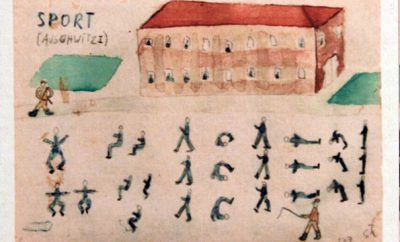 SPORT
(AUSCHWITZ I)